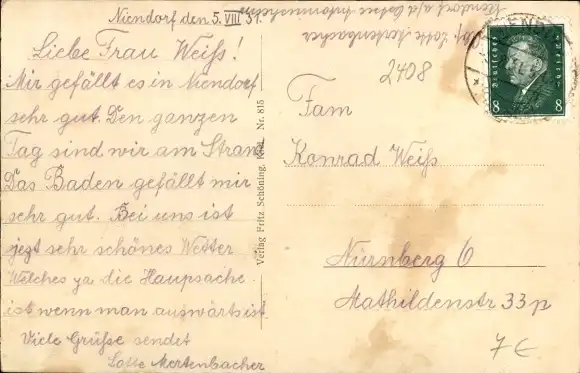 Niendorf den 5. VIII 31.
Liebe Frau Weiß!
Mir gefällt es in Niendorf
sehr gut. Den ganzen
Tag sind wir am Strand
Das Baden gefällt mir
sehr gut. Bei uns ist
jetzt sehr schönes Wetter
Welches ja die Haupsache
ist wenn man auswärts ist
Viele Grüße sendet
Lotte Mertenbacher
Verlag Fritz Schöning, Nr. 815
Abs. Lotte Mertenbacher
Niendorf a/d Ostsee
2408
Deutsches Reich
8 8
Fam
Konrad Weiß
Nürnberg 6
Mathildenstr 33p
7€